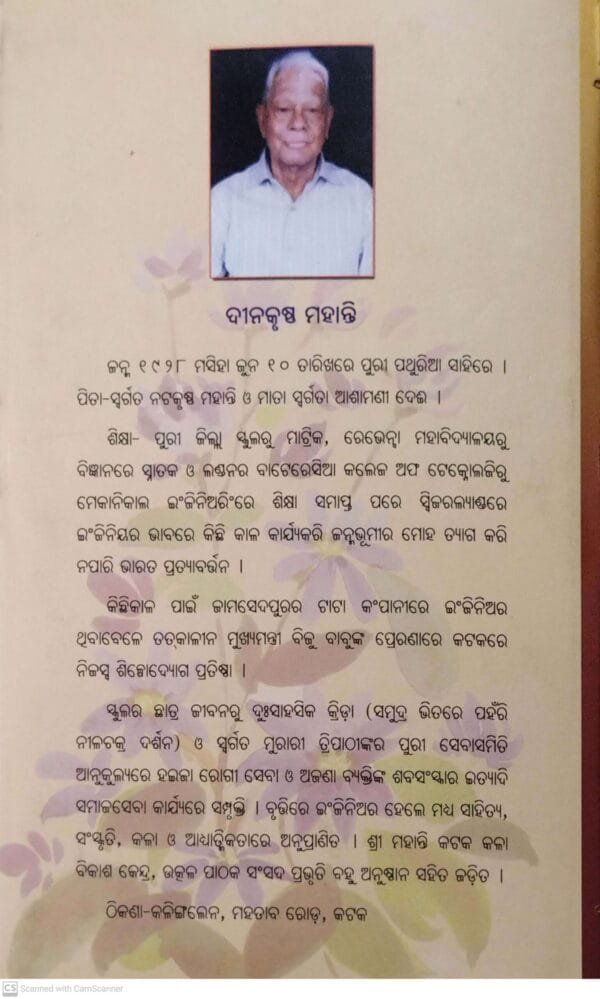 ଦୀନକୃଷ୍ଣ ମହାନ୍ତି
ଜନ୍ମ ୧୯୨୮ ମସିହା ଜୁନ ୧୦ ତାରିଖରେ ପୁରୀ ପଥୁରିଆ ସାହିରେ ।
ପିତା-ସ୍ୱର୍ଗତ ନଟକୃଷ୍ଣ ମହାନ୍ତି ଓ ମାତା ସ୍ୱର୍ଗତା ଆଶାମଣୀ ଦେଈ ।
ଶିକ୍ଷା- ପୁରୀ ଜିଲ୍ଲା ସ୍କୁଲରୁ ମାଟ୍ରିକ, ରେଭେନ୍ସା ମହାବିଦ୍ୟାଳୟରୁ
ବିଜ୍ଞାନରେ ସ୍ନାତକ ଓ ଲଣ୍ଡନର ବାଟେରେସିଆ କଲେଜ ଅଫ ଟେକ୍ନୋଲଜିରୁ
ମେକାନିକାଲ ଇଂଜିନିଅରିଂରେ ଶିକ୍ଷା ସମାପ୍ତ ପରେ ସ୍ୱିଜରଲ୍ୟାଣ୍ଡରେ
ଇଂଜିନିୟର ଭାବରେ କିଛି କାଳ କାର୍ଯ୍ୟକରି ଜନ୍ମଭୂମୀର ମୋହ ତ୍ୟାଗ କରି
ନପାରି ଭାରତ ପ୍ରତ୍ୟାବର୍ତ୍ତନ ।
କିଛିକାଳ ପାଇଁ ଜାମସେଦପୁରର ଟାଟା କଂପାନୀରେ ଇଂଜିନିଅର
ଥିବାବେଳେ ତତ୍କାଳୀନ ମୁଖ୍ୟମନ୍ତ୍ରୀ ବିଜୁ ବାବୁଙ୍କ ପ୍ରେରଣାରେ କଟକରେ
ନିଜସ୍ୱ ଶିଳ୍ପୋଦ୍ୟୋଗ ପ୍ରତିଷ୍ଠା ।
ସ୍କୁଲର ଛାତ୍ର ଜୀବନରୁ ଦୁଃସାହସିକ କ୍ରିଡ଼ା (ସମୁଦ୍ର ଭିତରେ ପହଁରି
ନୀଳଚକ୍ର ଦର୍ଶନ) ଓ ସ୍ୱର୍ଗତ ମୁରାରୀ ତ୍ରିପାଠୀଙ୍କର ପୁରୀ ସେବାସମିତି
ଆନୁକୁଲ୍ୟରେ ହଇଜା ରୋଗୀ ସେବା ଓ ଅଜଣା ବ୍ୟକ୍ତିଙ୍କ ଶବସଂସ୍କାର ଇତ୍ୟାଦି
ସମାଜସେବା କାର୍ଯ୍ୟରେ ସମ୍ପୃକ୍ତି । ବୃତ୍ତିରେ ଇଂଜିନିଅର ହେଲେ ମଧ୍ୟ ସାହିତ୍ୟ,
ସଂସ୍କୃତି, କଳା ଓ ଆଧ୍ୟାତ୍ମିକତାରେ ଅନୁପ୍ରାଣିତ । ଶ୍ରୀ ମହାନ୍ତି କଟକ କଳା
ବିକାଶ କେନ୍ଦ୍ର, ଉତ୍କଳ ପାଠକ ସଂସଦ ପ୍ରଭୃତି ବହୁ ଅନୁଷ୍ଠାନ ସହିତ ଜଡ଼ିତ ।
ଠିକଣା-କଳିଙ୍ଗଲେନ, ମହତାବ ରୋଡ଼, କଟକ
CS Scanned with CamScanner